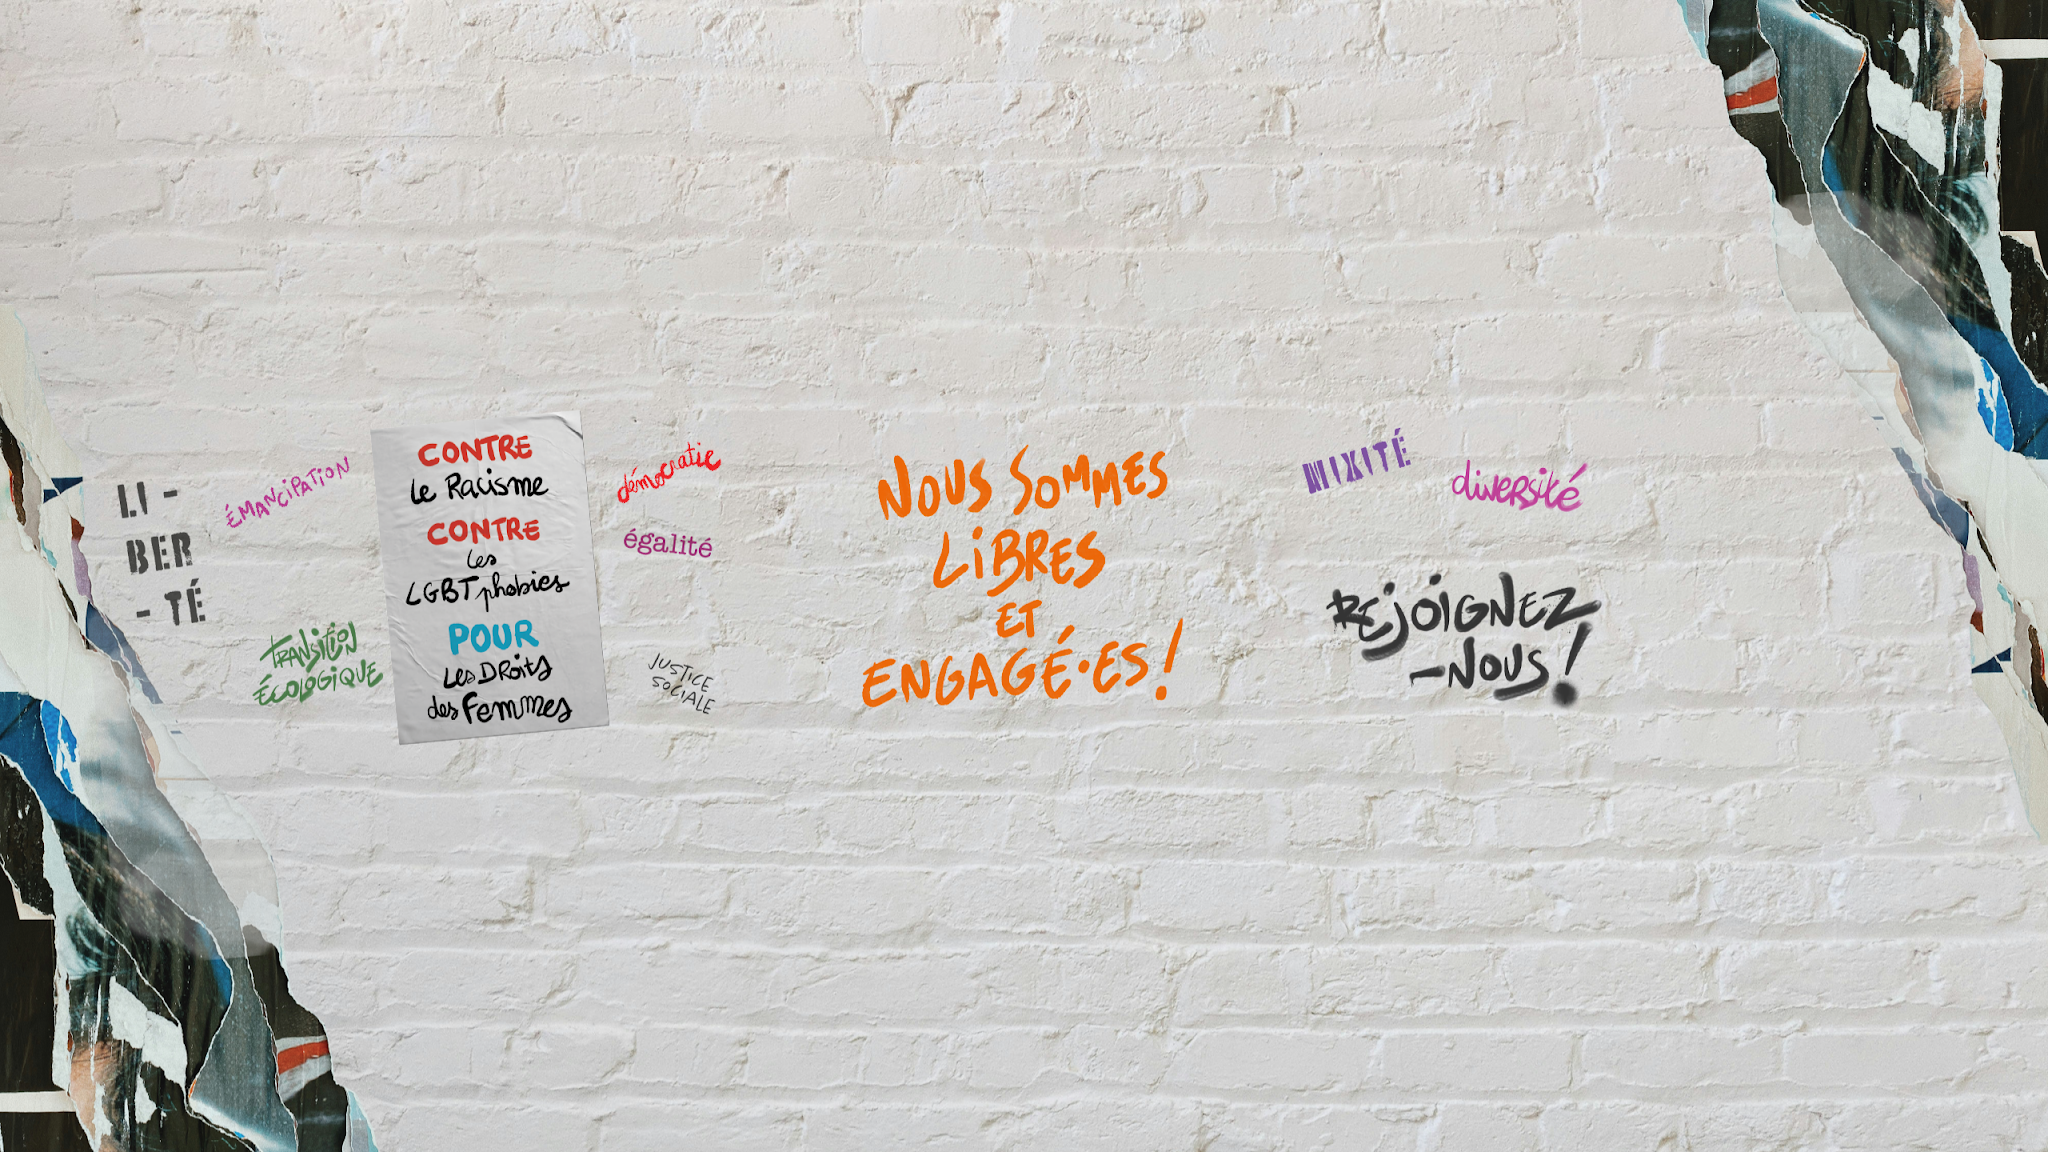 LI -
BER
- TÉ
ÉMANCIPATION
TRANSITION
ÉCOLOGIQUE
CONTRE
le Racisme
CONTRE
les
LGBTphobies
POUR
Les DRoits
des Femmes
démocratie
égalité
JUSTICE
SOCIALE
NOUS SOMMES
LiBRES
ET
ENGAGÉ·ES !
MIXITÉ
diveRsité
REjOiGNEZ
-NOUS !